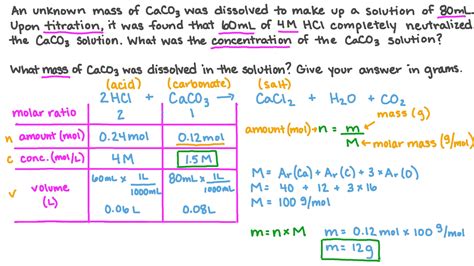 An unknown mass of CaCO₃ was dissolved to make up a solution of 80mL.
Upon titration, it was found that 60mL of 4M HCl completely neutralized
the CaCO₃ solution. What was the concentration of the CaCO₃ solution?
What mass of CaCO₃ was dissolved in the solution? Give your answer in grams.
(acid) (carbonate) (salt)
2HCl + CaCO₃ → CaCl₂ + H₂O + CO₂
molar ratio 2 1
n amount (mol) 0.24mol 0.12mol
c conc. (mol/L) 4M 1.5M
v volume (L) 60mL × 1L/1000mL 80mL × 1L/1000mL
0.06L 0.08L
mass (g)
amount (mol) → n = m/M ← molar mass (g/mol)
M = Ar(Ca) + Ar(C) + 3×Ar(O)
M = 40 + 12 + 3×16
M = 100 g/mol
m = n×M m = 0.12mol × 100 g/mol
m = 12g